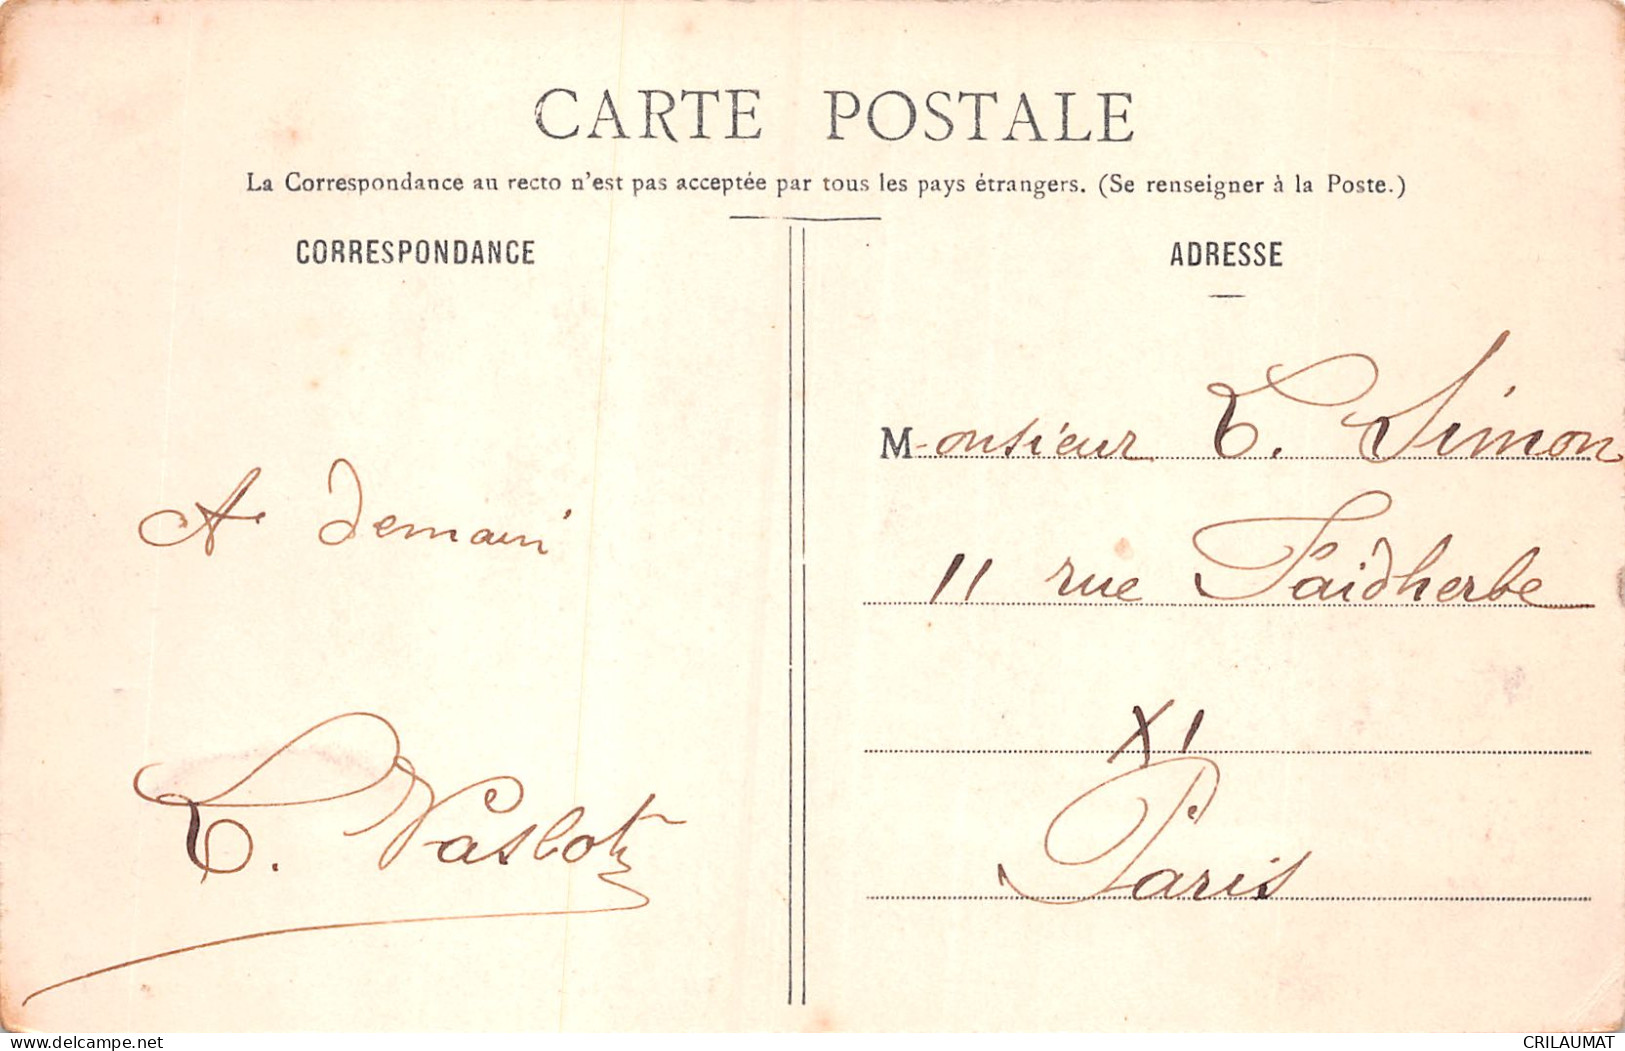 CARTE POSTALE
La Correspondance au recto n'est pas acceptée par tous les pays étrangers. (Se renseigner à la Poste.)
CORRESPONDANCE
A demain
ADRESSE
Monsieur Simon
11 rue Faidherbe
XI
Paris
www.delcampe.net
CRILAUMAT